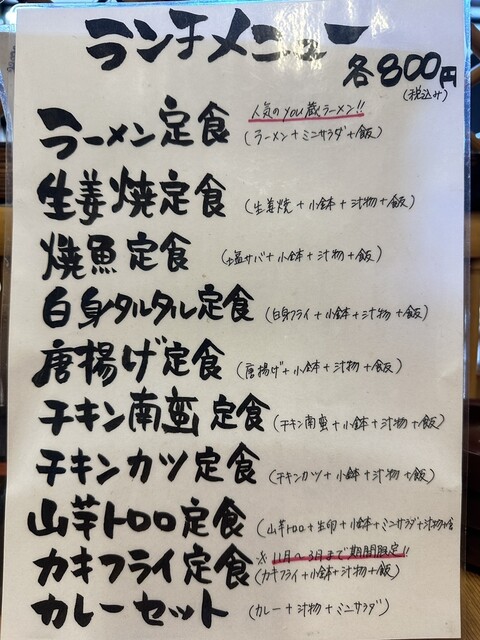 ランチメニュー
各800円
(税込み)
人気のyou蔵ラーメン!!
ラーメン定食 (ラーメン+ミニサラダ+飯)
生姜焼定食 (生姜焼+小鉢+汁物+飯)
焼魚定食 (塩サバ+小鉢+汁物+飯)
白身タルタル定食 (白身フライ+小鉢+汁物+飯)
唐揚げ定食 (唐揚げ+小鉢+汁物+飯)
チキン南蛮定食 (チキン南蛮+小鉢+汁物+飯)
チキンカツ定食 (チキンカツ+小鉢+汁物+飯)
山芋トロロ定食 (山芋トロロ+生卵+小鉢+ミニサラダ+汁物+
※11月〜3月まで期間限定!!
カキフライ定食 (カキフライ+小鉢+汁物+飯)
カレーセット (カレー+汁物+ミニサラダ)